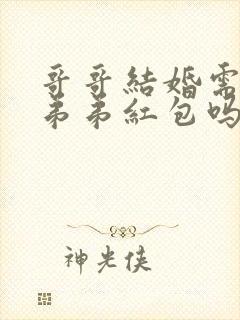 哥哥結婚需
弟弟紅包吗
神光侠